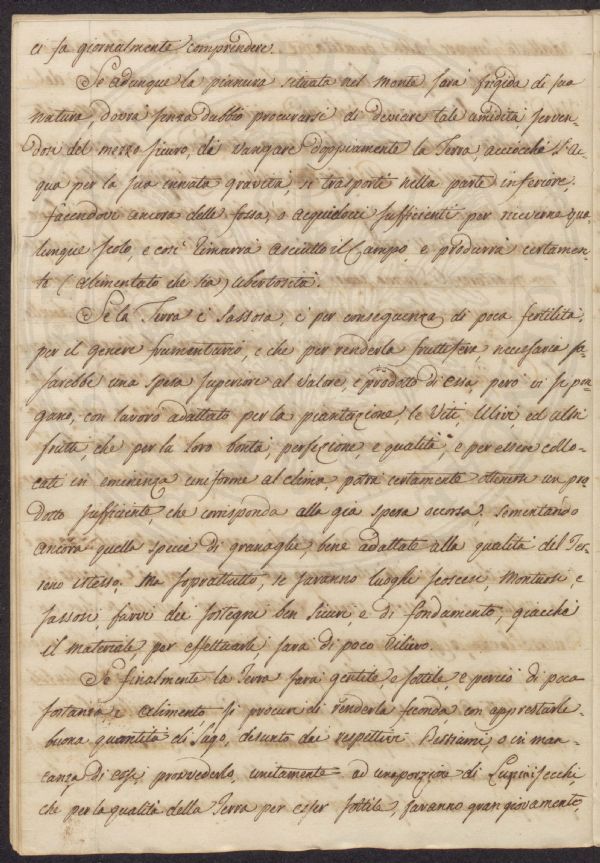 ci fa giornalmente comprendere.
Se adunque la pianura situata nel Monte sarà frigida di sua
natura, dovrà senza dubbio procurarsi di deviare tale umidità, serven-
dosi del mezzo sicuro, di vangare doppiamente la Terra, acciocchè l'ac-
qua per la sua innata gravità, si trasporti nella parte inferiore.
facendovi ancora delle fosse, o acquidocci sufficienti per riceverne qua-
lunque scolo, e così rimarrà asciutto il Campo, e produrrà certamen-
te (alimentato che sia) ubertosità.
Se la Terra è sassosa, è per conseguenza di poca fertilità,
per il genere frumentario, e che per renderla fruttifera, necessaria fos-
sarebbe una spesa superiore al valore, e prodotto di essa, però vi si pon-
gano, con lavoro adattato per la piantazione, le Viti, Ulivi, ed altri
frutti, che per la loro bontà, perfezione, e qualità, e per essere collo-
cati in eminenza uniforme al clima, potrà certamente ottenersi un pro-
dotto sufficiente, che corrisponda alla già spesa occorsa, sementando
ancora quella specie di granaglie, bene adattate alla qualità del Ter-
reno istesso. Ma soprattutto, se saranno luoghi scoscesi, Montuosi e
sassosi, farvi dei sostegni ben sicuri e di fondamento, giacchè
il materiale per effettuarli sarà di poco rilievo.
Se finalmente la Terra sarà gentile, e sottile, e perciò di poca
sostanza, e alimento, si procuri di renderla feconda con apprestarle
buona quantità di Sugo, desunto dai respettivi Bestiami, o in man-
canza di essi, provvederlo, unitamente ad una porzione di Lupini secchi,
che per la qualità della Terra per esser sottile, faranno gran giovamento,